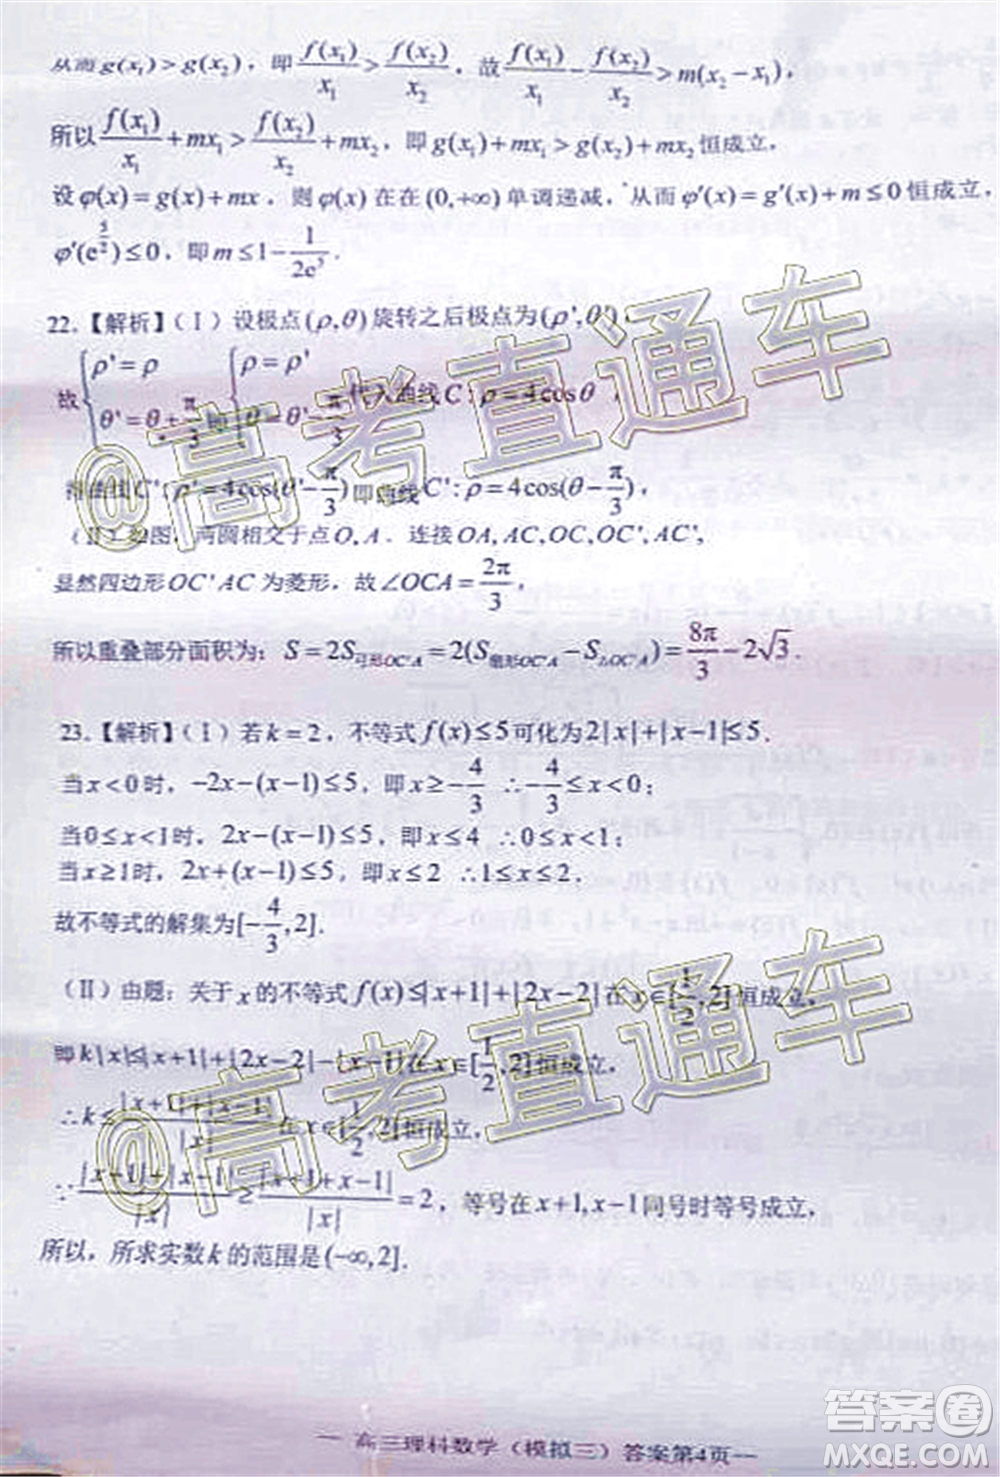 从而 g(x₁)>g(x₂)，即 f(x₁)/x₁ > f(x₂)/x₂，故 f(x₁)/x₁ − f(x₂)/x₂ > m(x₂−x₁)，
所以 f(x₁)/x₁ + mx₁ > f(x₂)/x₂ + mx₂，即 g(x₁)+mx₁ > g(x₂)+mx₂ 恒成立，
设 φ(x)=g(x)+mx，则 φ(x) 在在 (0,+∞) 单调递减，从而 φ'(x)=g'(x)+m≤0 恒成立，
φ'(e^(5/2))≤0，即 m≤1−1/(2e⁵)．
22.【解析】(Ⅰ) 设极点 (ρ,θ) 旋转之后极点为 (ρ',θ')，
故 { ρ'=ρ, θ'=θ+π/3 即 { ρ=ρ', θ=θ'−π/3 代入曲线 C：ρ=4cosθ，
得曲线 C'：ρ'=4cos(θ'−π/3) 即曲线 C'：ρ=4cos(θ−π/3)，
(Ⅱ) 如图，两圆相交于点 O,A．连接 OA, AC, OC, OC', AC',
显然四边形 OC'AC 为菱形，故 ∠OCA=2π/3，
所以重叠部分面积为：S=2S弓形OC'A=2(S扇形OC'A−S△OC'A)=8π/3−2√3．
23.【解析】(Ⅰ) 若 k=2，不等式 f(x)≤5 可化为 2|x|+|x−1|≤5．
当 x<0 时，−2x−(x−1)≤5，即 x≥−4/3 ∴−4/3≤x<0；
当 0≤x<1 时，2x−(x−1)≤5，即 x≤4 ∴0≤x<1；
当 x≥1 时，2x+(x−1)≤5，即 x≤2 ∴1≤x≤2，
故不等式的解集为[−4/3,2]．
(Ⅱ) 由题：关于 x 的不等式 f(x)≤|x+1|+|2x−2| 在 x∈[1/2,2] 恒成立，
即 k|x|≤|x+1|+|2x−2|−|x−1| 在 x∈[1/2,2] 恒成立，
∴k≤(|x+1|+|x−1|)/|x| 在 x∈[1/2,2] 恒成立，
∵(|x−1|+|x−1|)/|x| ≥ |x+1+x−1|/|x| =2，等号在 x+1,x−1 同号时等号成立，
所以，所求实数 k 的范围是 (−∞,2]．
@高考直通车
@高考直通车
— 高三理科数学（模拟三）答案第4页—
答案圈
MXQE.COM